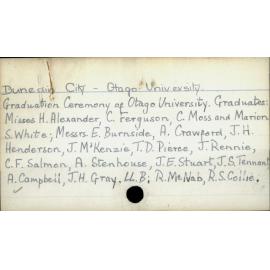 Dunedin City - Otago University.
Graduation Ceremony of Otago University. Graduates:
Misses H. Alexander, C. Ferguson, C. Moss and Marion
S. White; Messrs E. Burnside, A. Crawford, J. H.
Henderson, J. McKenzie, T. D. Pierce, J. Rennie,
C. F. Salmon, A. Stenhouse, J. E. Stuart, J. S. Tennant
A. Campbell, J. H. Gray. LL.B; R. McNab, R. S. Collie.